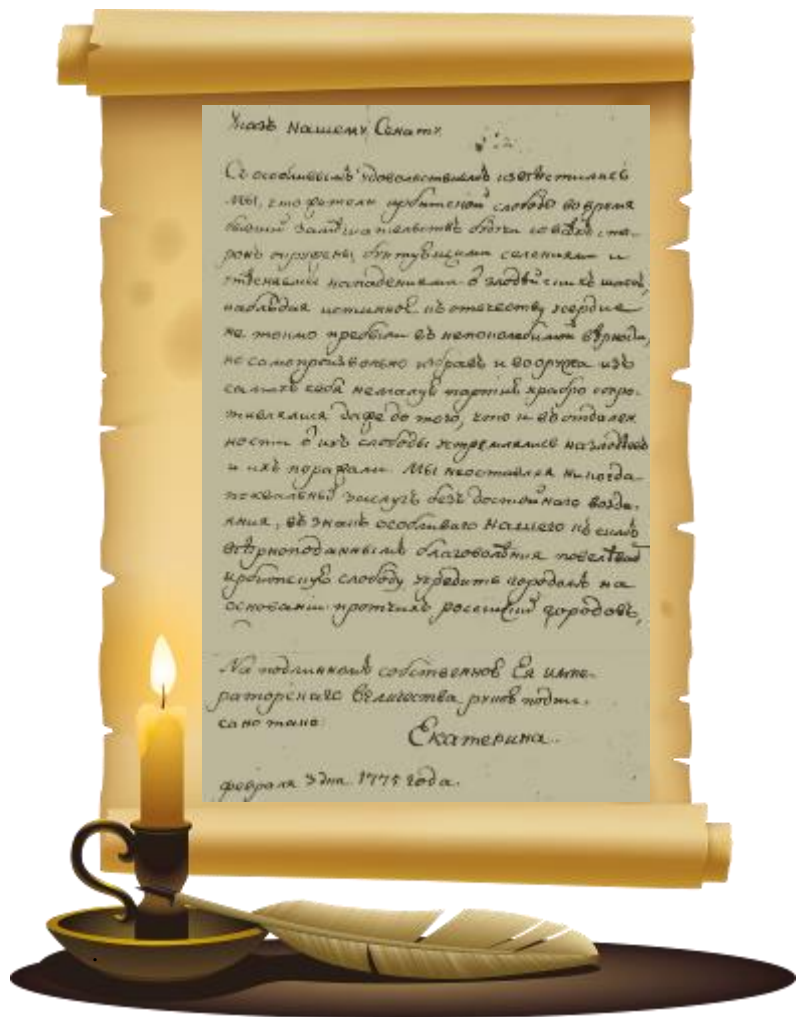 Указъ Нашему Сенату.
Съ особливымъ удовольствиемъ известились
мы, что жители ирбитской слободы во время
бывшихъ замешательствъ будучи со всехъ сто-
ронъ окружены бунтующими селениями и
нападениями злодейскихъ шаекъ,
наблюдая истинное къ отечеству усердие
не токмо пребыли въ непоколебимой верности,
но самопроизвольно избравъ и вооружа изъ
самихъ себя немалую партию храбро сопро-
тивлялися даже до того, что и въ отдален
ности о ихъ слободы устремлялись на злодеевъ
и ихъ поражали. Мы неоставляя никогда
похвальныхъ заслугъ безъ достойнаго возда-
яния, въ знакъ особливаго Нашего къ симъ
вернопод­аннымъ благоволения повелеваемъ
ирбитскую слободу учредить городомъ на
основании протчихъ российскихъ городовъ,
На подлинномъ собственною Ея импе-
раторскаго величества рукою подпи-
сано тако:
Екатерина.
февраля 3 дня 1775 года.